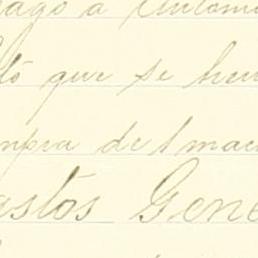 pago a Antoni
que se hen
mpra de 1 mac
astos Gene